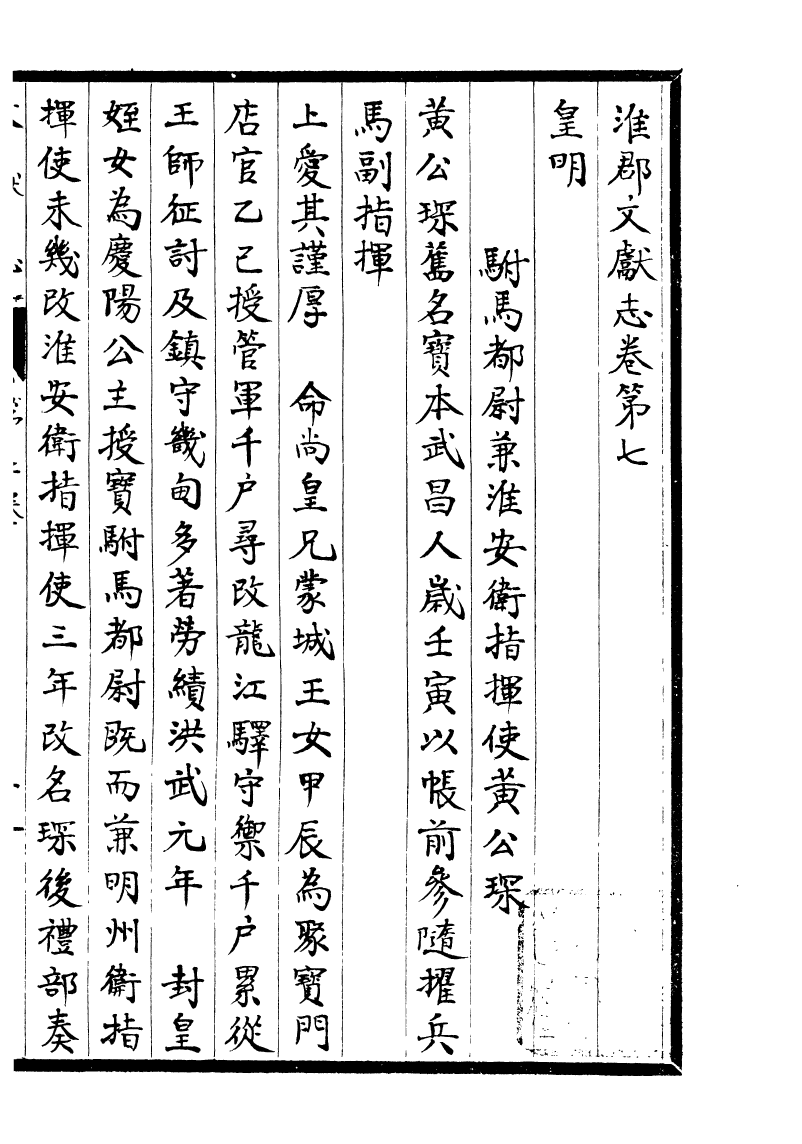 淮郡文獻志卷第七
皇明
駙馬都尉兼淮安衛指揮使黃公琛
黃公琛舊名寶本武昌人歲壬寅以帳前參隨擢兵
馬副指揮
上愛其謹厚　命尚皇兄蒙城王女甲辰為聚寶門
店官乙巳授管軍千户尋改龍江驛守禦千户累從
王師征討及鎮守畿甸多著勞績洪武元年　封皇
姪女為慶陽公主授寶駙馬都尉既而兼明州衛指
揮使未幾改淮安衛指揮使三年改名琛後禮部奏